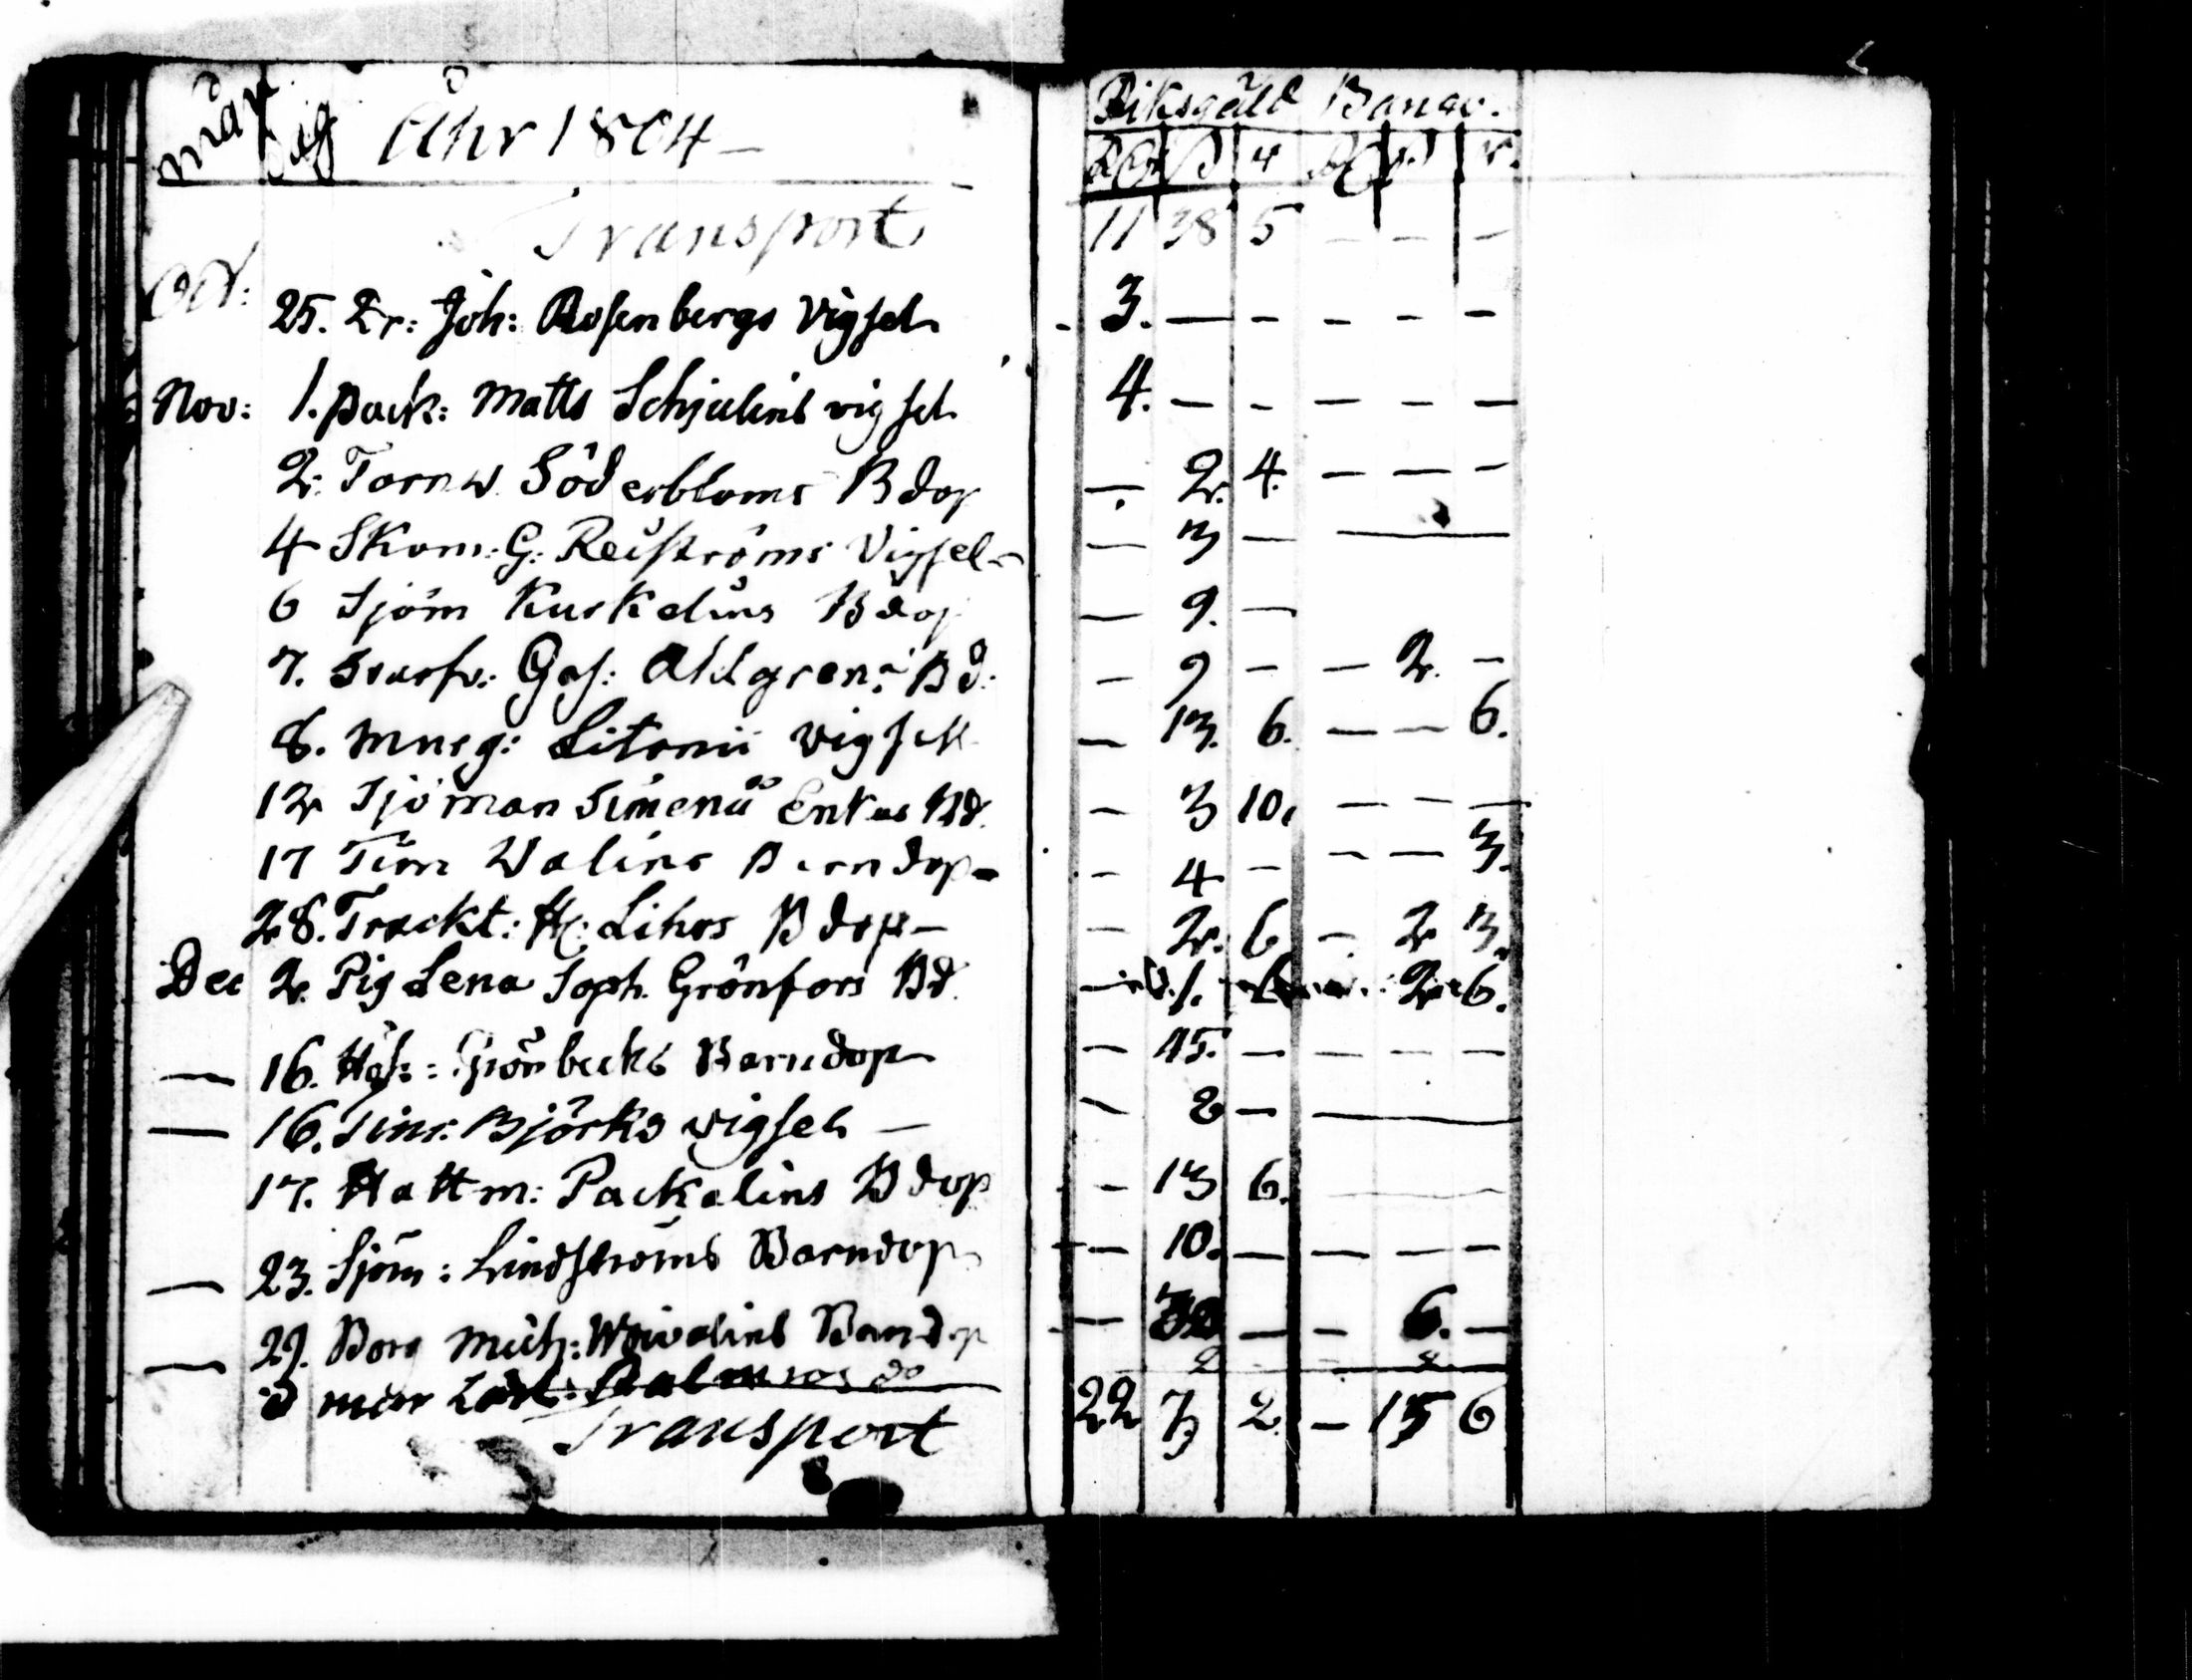 mån dag Åhr 1804 — Riksgäld Banco.
Rd ß r Rd ß r.
Transport 11 38 5 — — —
Oct: 25. Er: Joh: Rosenbergs Vigsel 3. — — — — —
Nov: 1. pack: Matts Schjulins vigsel 4. — — — — —
2. Tornw. Söderbloms Bdop — 2. 4. — — —
4 Skom: G: Reiströms Vigsel — 3 — —
6 Sjöm Kuskelins Bdop — 9. —
7. Gas: Ahlgrens Bd: — 9 — — 2. —
8. Litonii vigsell — 13. 6. — — 6.
12 Sjöman Simenii Enkas Bd. — 3 10. — — —
17 Tim Walins Barndop — 4 — — — 3.
28. Trackt: H: Lihrs Bdop — — 2. 6 — 2 3.
Dec 2. Pig Lena Soph. Grönfors Bd. — 1. 2 6.
— 16. Grönbecks Barndop — 15. — — — —
— 16. Timr. Björks vigsel — — 2 — —
17. Hattm: Packalins Bdop — 13 6. —
— 23. Sjöm: Lindströms Barndop — 10. — — — —
— 29. Borg Mich: Woivalins Barndop — — — 6. —
d mur 2 — — 2
Transport 22 7 2 — 15 6